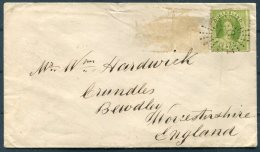 Mr. Wm Hardwick
Crundles
Bewdley
Worcestershire
England